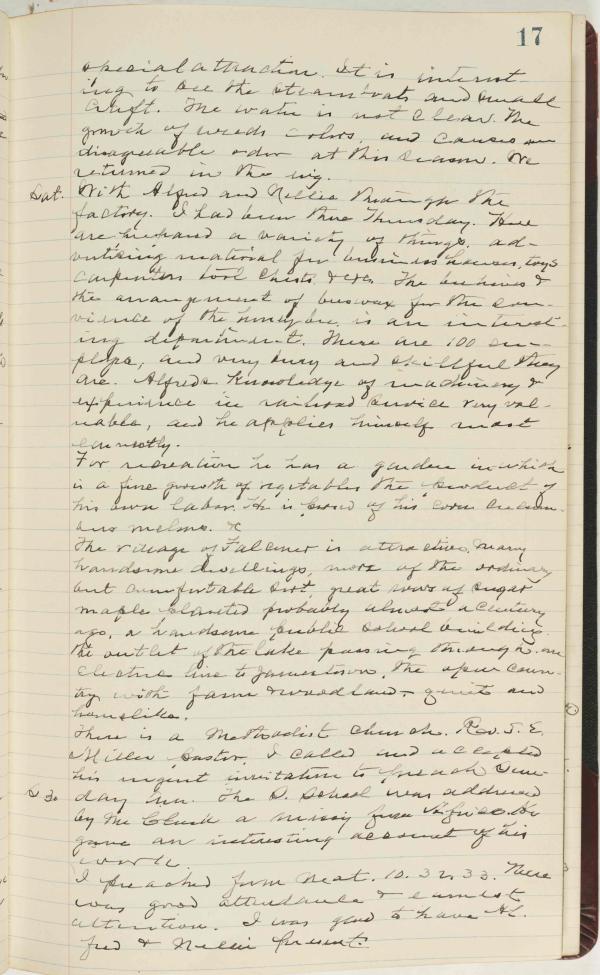 17
special attraction. It is interest-
ing to see the steamboats and small
craft. The water is not clear. The
growth of weeds colors, and causes
disagreeable odor at this season. We
returned in the rig.
Sat. With Alfred and Nellie through the
factory. I had been there Thursday. Here
are prepared a variety of things, ad-
vertising material for business houses, toys
carpenters tool chests, & etc. The beehives &
the arrangement of beeswax for the con-
vience of the honey bee, is an interest-
ing department. There are 100 em-
ploye, and very busy and skillful they
are. Alfreds Knowledge of machinery &
experience in railroad service very val-
uable, and he applies himself most
earnestly.
For recreation he has a garden in which
is a fine growth of vegetables the product of
his own labor. He is proud of his corn cucum-
bers melons. &
The village of Falconer is attractive. Many
handsome dwellings, more of the ordinary
but comfortable sort, great rows of sugar
maple planted probably almost a century
ago, a handsome public school building.
the outlet of the lake passing through. an
electric line to Jamestown, the open coun-
try with farm & woodland - quiet and
homelike.
There is a Methodist church. Rev. S. E.
Miller Pastor. I called and accepted
his urgent invitation to preach Sun-
S 30 day mn. The S. School was addressed
by Mr a missy from Africa. He
gave an interesting account of his
work.
I preached from Matt. 10. 32, 33. There
was good attendance & earnest
attention. I was glad to have Al-
fred & Nellie present.